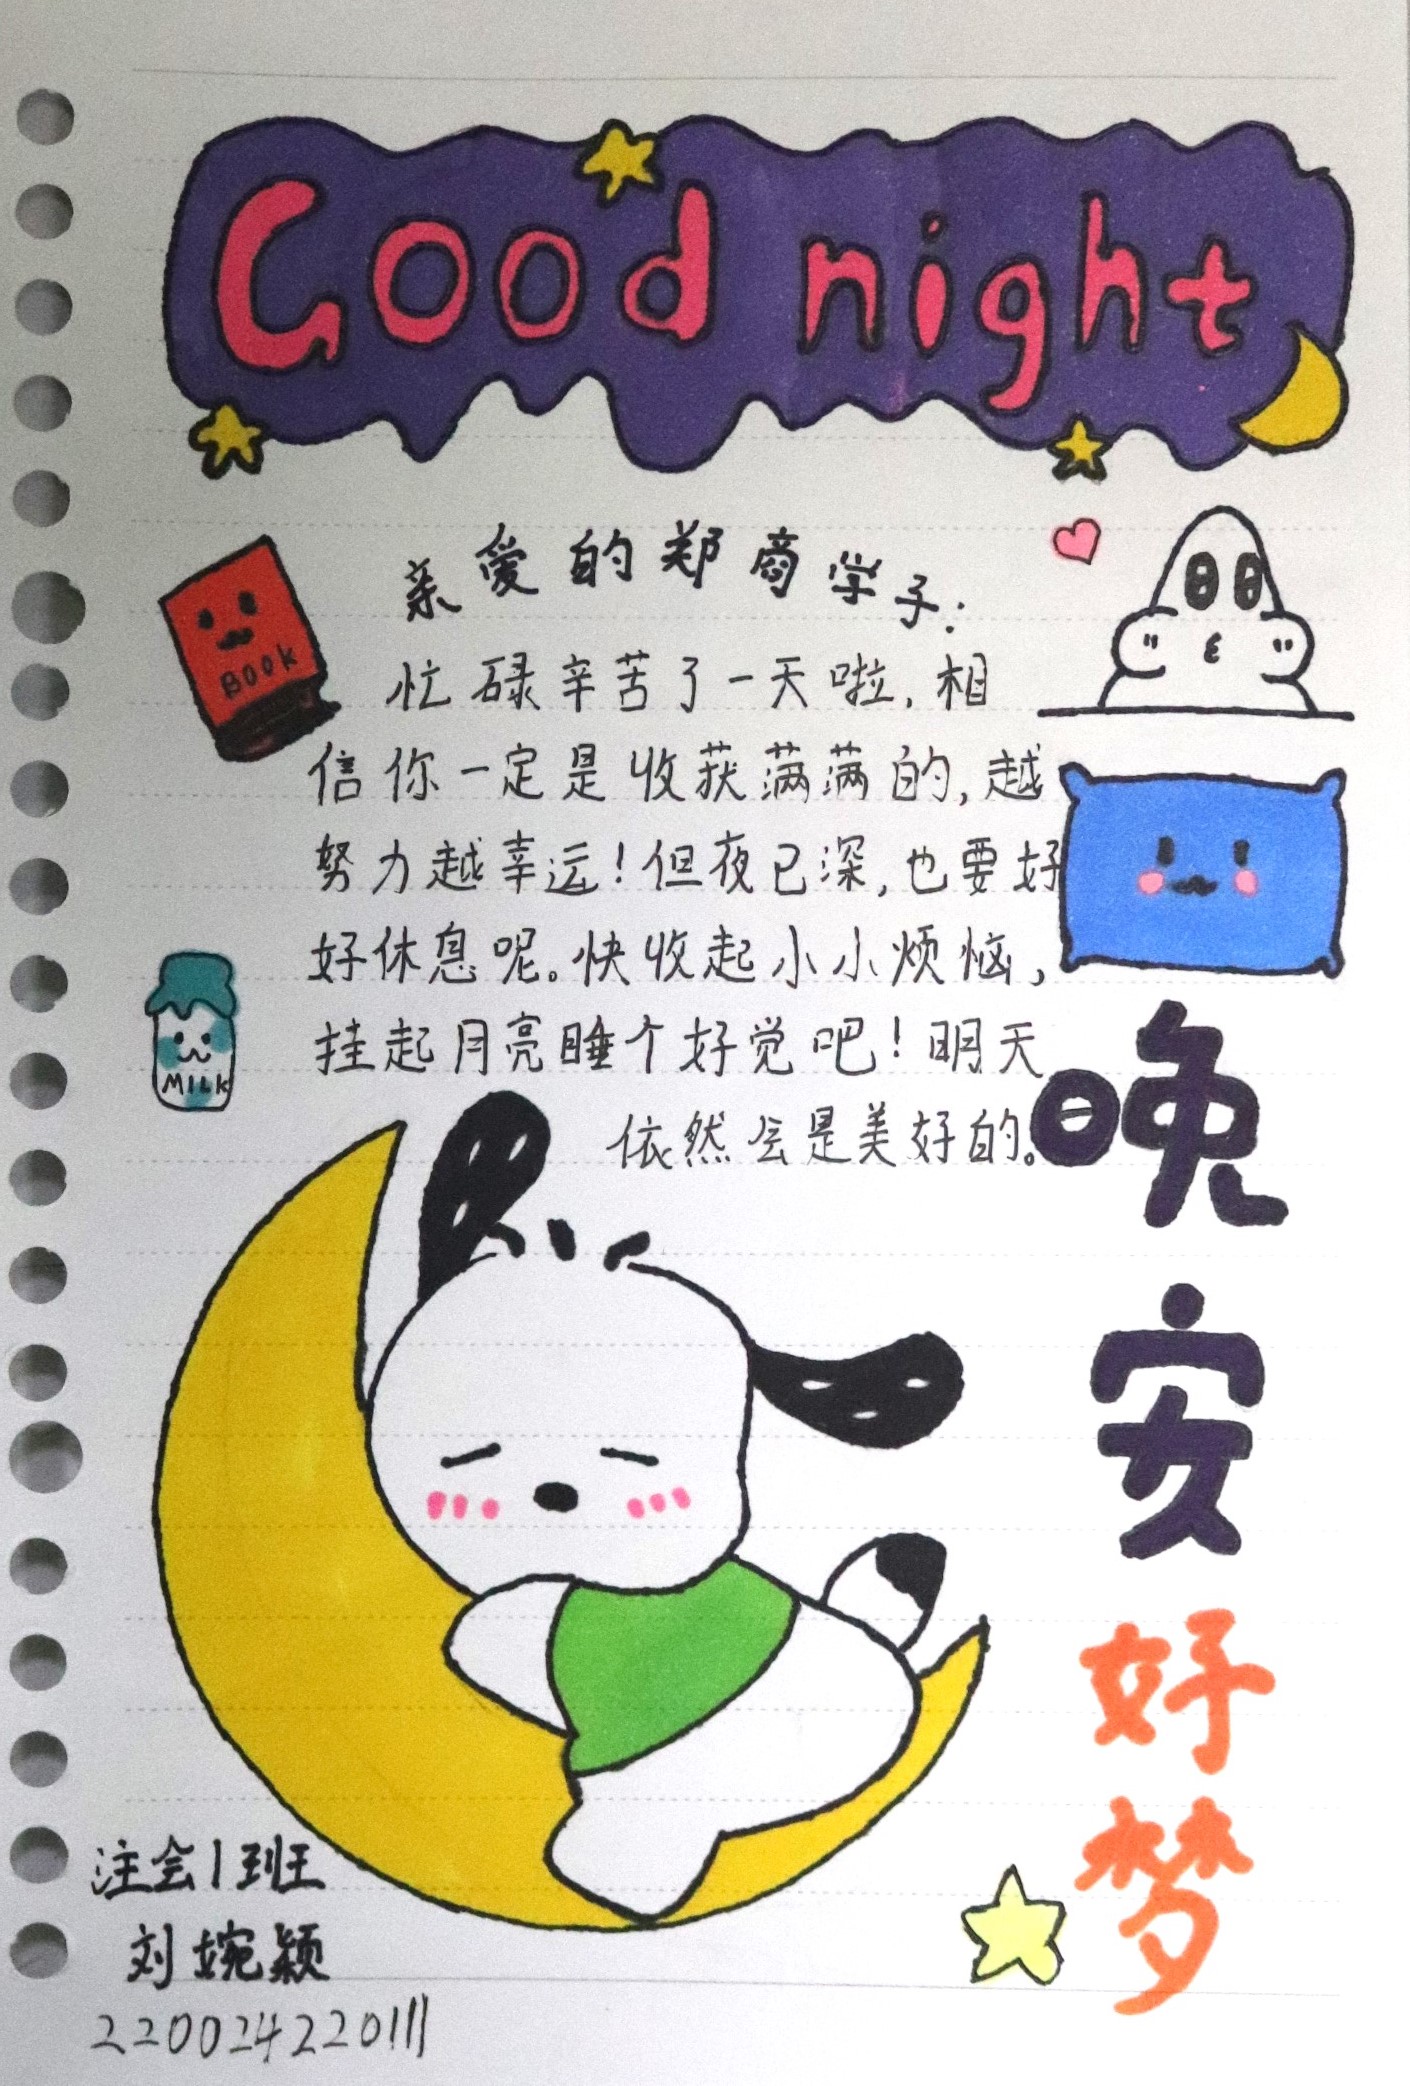 Good night
亲爱的郑商学子：
BOOK
忙碌辛苦了一天啦，相
信你一定是收获满满的，越
努力越幸运！但夜已深，也要好
好休息呢。快收起小小烦恼，
挂起月亮睡个好觉吧！明天
依然会是美好的。
MILK
晚安
好梦
注会1班
刘婉颖
220024220111